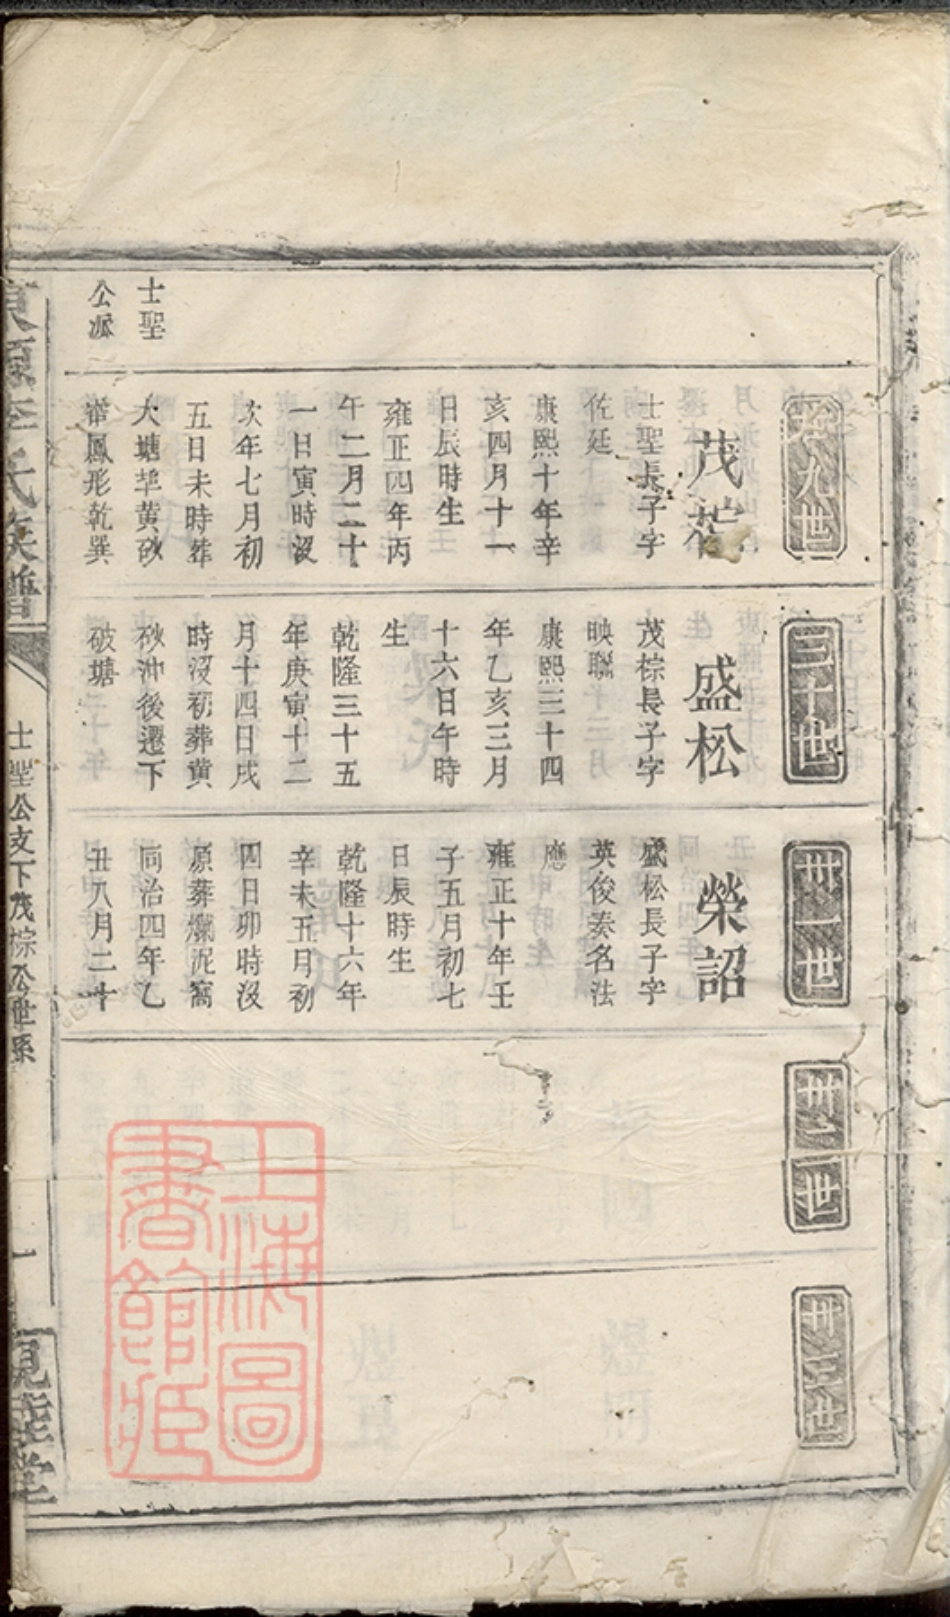 士聖
公派
廿九世
茂棕
士聖長子字
佐廷
康熙十年辛
亥四月十一
日辰時生
雍正四年丙
午二月二十
一日寅時沒
次年七月初
五日未時葬
大塘華黃砂
凿鳳形乾巽
三十世
盛松
茂棕長子字
映聯
康熙三十四
年乙亥三月
十六日午時
生
乾隆三十五
年庚寅十二
月十四日戌
時沒初葬黃
砂沖後遷下
破塘
卅一世
榮詔
盛松長子字
英俊奏名法
應
雍正十年壬
子五月初七
日辰時生
乾隆十六年
辛未五月初
四日卯時沒
原葬爛泥窩
同治四年乙
丑八月二十
卅二世
卅三世
李氏族譜
士聖公支下茂棕公世系
一
堂
上海圖
書館藏